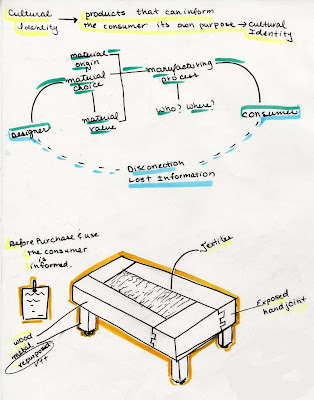 Cultural Identity → products that can inform the consumer its own purpose → Cultural Identity
material origin
material choice
material value
manufacturing process
Who? Where?
Designer
Consumer
Disconection
Lost Information
Before Purchase & use
the consumer
is
informed.
textiles
Exposed
hand joint
wood
metal
repurposed